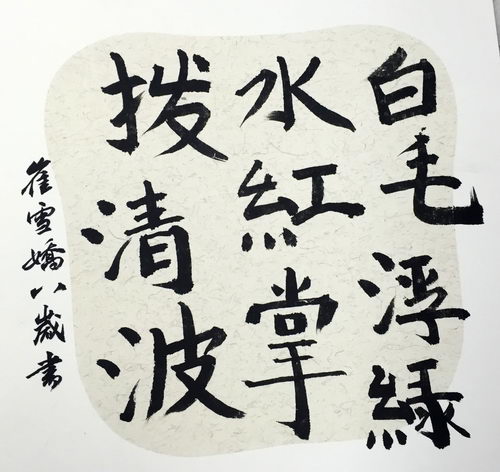 白毛浮緑
水紅掌
拨清波
崔雪嬌八歲書